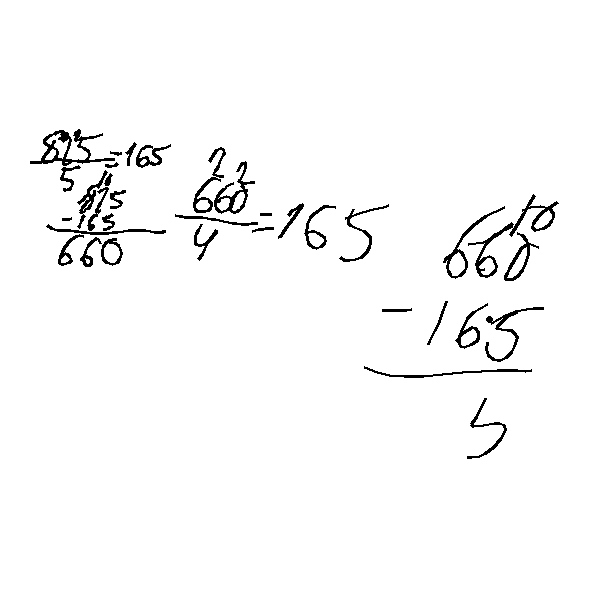 825/5 = 165
825
-165
660
660/4 = 165
660
-165
5